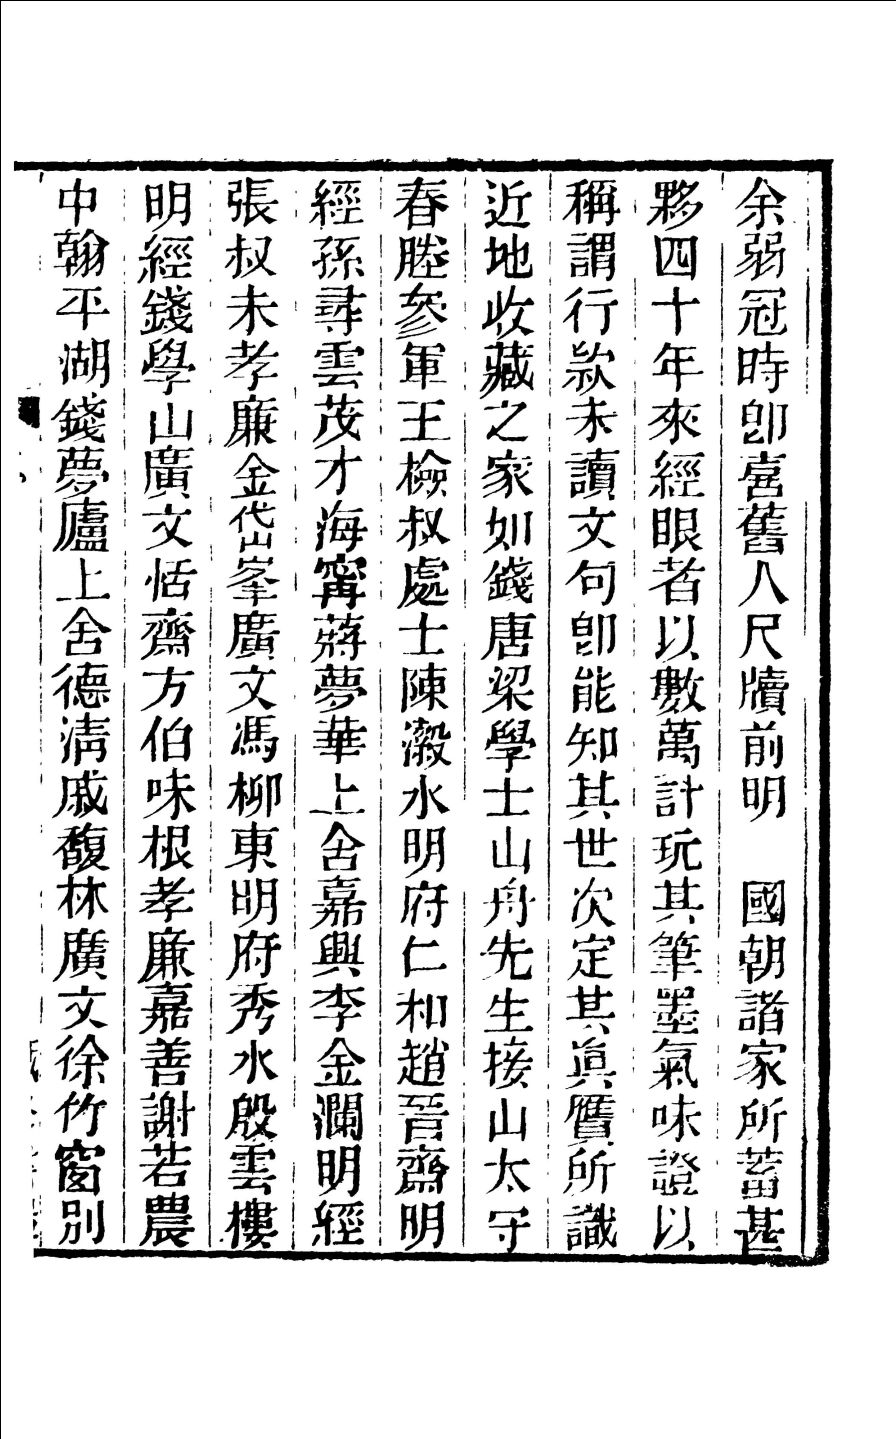 余弱冠時卽喜舊人尺牘前明　國朝諸家所蓄甚
夥四十年來經眼者以數萬計玩其筆墨氣味證以
稱謂行欵未讀文句卽能知其世次定其眞贋所識
近地收藏之家如錢唐梁學士山舟先生接山太守
春塍參軍王檢叔處士陳瀔水明府仁和趙晉齋明
經孫尋雲茂才海寗蔣夢華上舍嘉興李金瀾明經
張叔未孝廉金岱峯廣文馮柳東明府秀水殷雲樓
明經錢學山廣文恬齋方伯味根孝廉嘉善謝若農
中翰平湖錢夢廬上舍德淸戚馥林廣文徐竹窗別